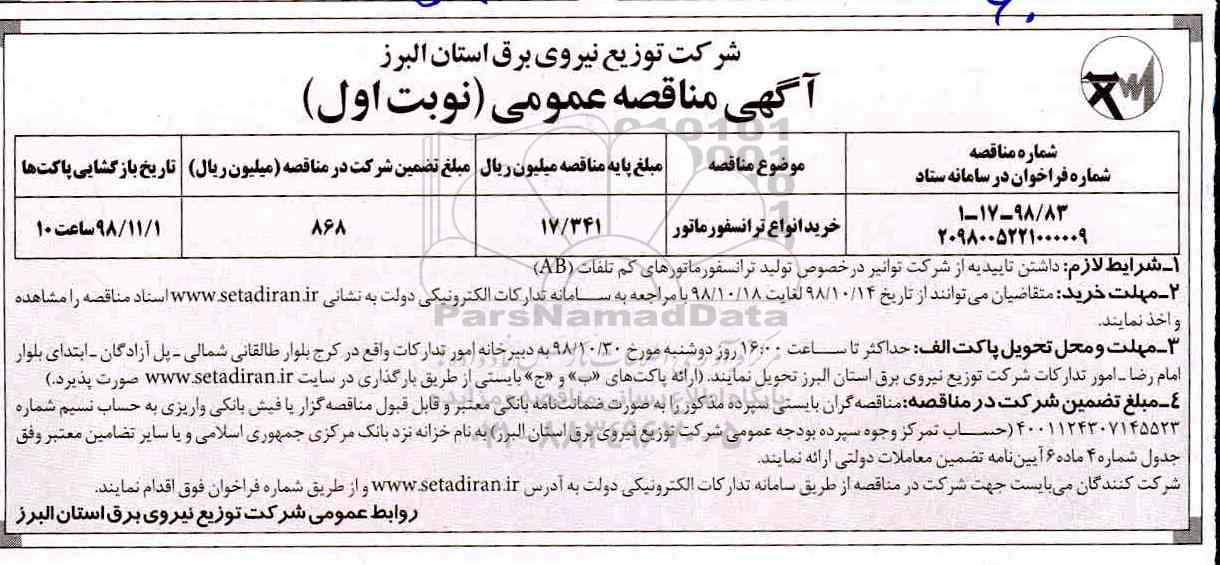 شرکت توزیع نیروی برق استان البرز
آگهی مناقصه عمومی (نوبت اول)
شماره مناقصه
شماره فراخوان در سامانه ستاد
موضوع مناقصه
مبلغ پایه مناقصه میلیون ریال
مبلغ تضمین شرکت در مناقصه (میلیون ریال)
تاریخ بازگشایی پاکت‌ها
۱-۱۷-۹۸/۸۳
۲۰۹۸۰۰۵۲۲۱۰۰۰۰۰۹
خرید انواع ترانسفورماتور
۱۷/۳۴۱
۸۶۸
۹۸/۱۱/۱ ساعت ۱۰
۱ـ شرایط لازم: داشتن تاییدیه از شرکت توانیر در خصوص تولید ترانسفورماتورهای کم تلفات (AB)
۲ـ مهلت خرید: متقاضیان می‌توانند از تاریخ ۹۸/۱۰/۱۴ لغایت ۹۸/۱۰/۱۸ با مراجعه به سامانه تدارکات الکترونیکی دولت به نشانی www.setadiran.ir اسناد مناقصه را مشاهده
و اخذ نمایند.
۳ـ مهلت و محل تحویل پاکت الف: حداکثر تا ساعت ۱۶:۰۰ روز دوشنبه مورخ ۹۸/۱۰/۳۰ به دبیرخانه امور تدارکات واقع در کرج بلوار طالقانی شمالی ـ پل آزادگان ـ ابتدای بلوار
امام رضا ـ امور تدارکات شرکت توزیع نیروی برق استان البرز تحویل نمایند. (ارائه پاکت‌های «ب» و «ج» بایستی از طریق بارگذاری در سایت www.setadiran.ir صورت پذیرد.)
۴ـ مبلغ تضمین شرکت در مناقصه: مناقصه‌گران بایستی سپرده مذکور را به صورت ضمانت‌نامه بانکی معتبر و قابل قبول مناقصه‌گزار یا فیش بانکی واریزی به حساب نسیم شماره
۴۰۰۱۱۲۴۳۰۷۱۴۵۵۲۳ (حساب تمرکز وجوه سپرده بودجه عمومی شرکت توزیع نیروی برق استان البرز) به نام خزانه نزد بانک مرکزی جمهوری اسلامی و یا سایر تضامین معتبر وفق
جدول شماره ۴ ماده ۶ آیین‌نامه تضمین معاملات دولتی ارائه نمایند.
شرکت کنندگان می‌بایست جهت شرکت در مناقصه از طریق سامانه تدارکات الکترونیکی دولت به آدرس www.setadiran.ir و از طریق شماره فراخوان فوق اقدام نمایند.
روابط عمومی شرکت توزیع نیروی برق استان البرز
ParsNamadData